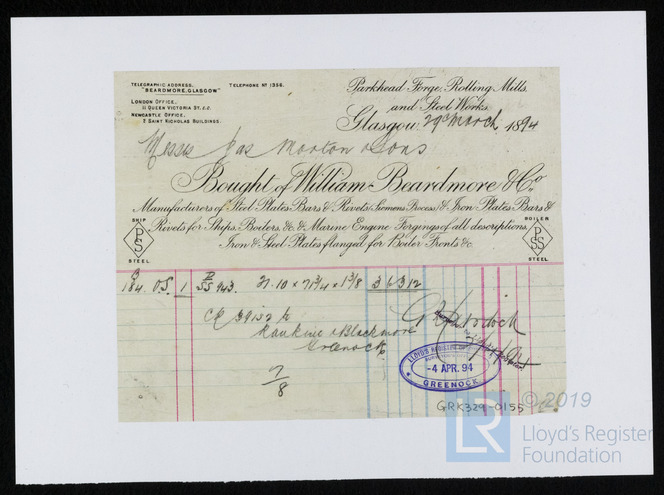 TELEGRAPHIC ADDRESS,
"BEARDMORE, GLASGOW"
TELEPHONE Nº 1356.
LONDON OFFICE,
11 QUEEN VICTORIA ST. E.C.
NEWCASTLE OFFICE,
2 SAINT NICHOLAS BUILDINGS.
Parkhead Forge, Rolling Mills,
and Steel Works,
Glasgow, 29 March 1894
Messrs Jas Morton & Sons
Bought of William Beardmore & Co.
Manufacturers of Steel Plates Bars & Rivets (Siemens Process) & Iron Plates Bars &
Rivets for Ships, Boilers, &c. & Marine Engine Forgings of all descriptions,
Iron & Steel Plates flanged for Boiler Fronts &c.
SHIP
PS
STEEL
BOILER
PSS
STEEL
B
184. OS. 1 SS 943. 31.10 x 71 3/4 x 1 3/8 3 6 3 12
CR 39152 to
Rankine & Blackmore
Greenock
7/8
LLOYD'S REGISTER OF
-4 APR. 94
GREENOCK
GRK329-0155
© 2019
LR
Lloyd's Register
Foundation